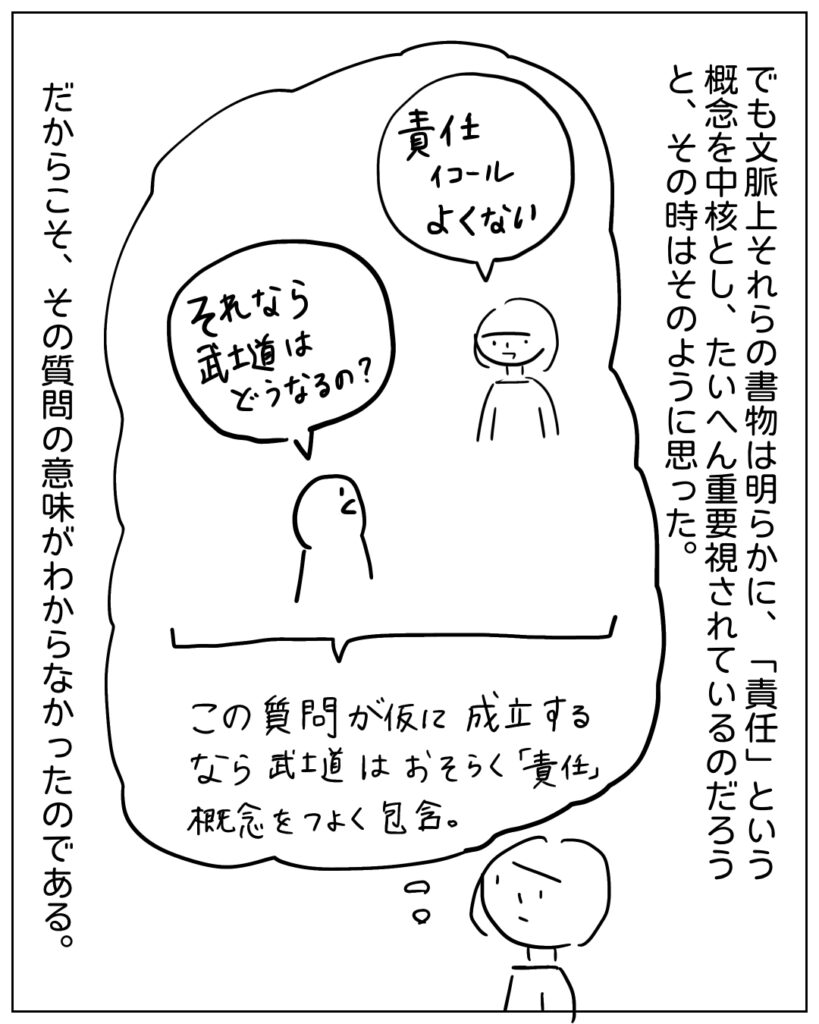 でも文脈上それらの書物は明らかに、「責任」という
概念を中核とし、たいへん重要視されているのだろう
と、その時はそのように思った。
責任
イコール
よくない
それなら
武士道は
どうなるの?
この質問が仮に成立する
なら武士道はおそらく「責任」
概念をつよく包含。
だからこそ、その質問の意味がわからなかったのである。